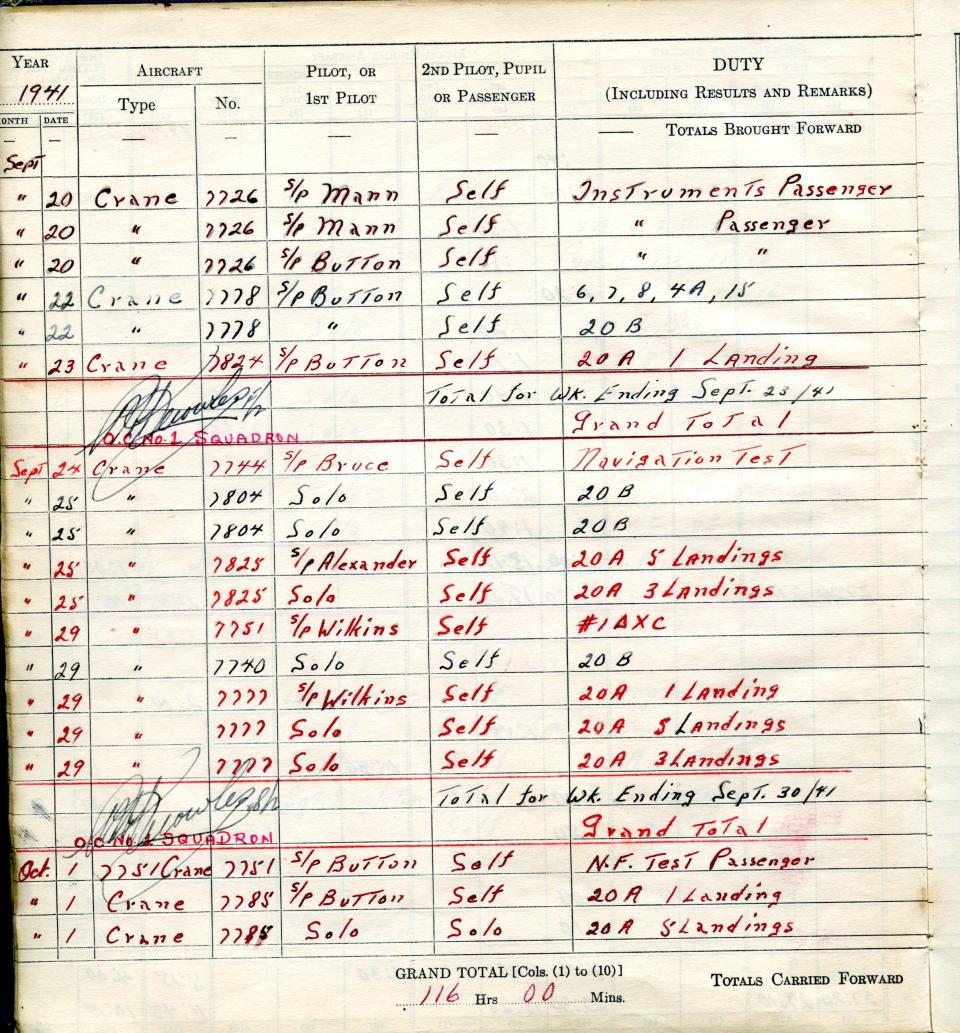 YEAR AIRCRAFT PILOT, OR 2ND PILOT, PUPIL DUTY
1941 Type No. 1ST PILOT OR PASSENGER (INCLUDING RESULTS AND REMARKS)
ONTH DATE
— — — — — — — TOTALS BROUGHT FORWARD
Sept
" 20 Crane 7726 S/P Mann Self Instruments Passenger
" 20 " 7726 S/P Mann Self " Passenger
" 20 " 7726 S/P Button Self " "
" 22 Crane 7778 S/P Button Self 6, 7, 8, 4A, 15
" 22 " 7778 " Self 20 B
" 23 Crane 7824 S/P Button Self 20 A 1 Landing
Total for Wk. Ending Sept. 23/41
Grand Total
O.C. No. 1 SQUADRON
Sept 24 Crane 7744 S/P Bruce Self Navigation Test
" 25 " 7804 Solo Self 20 B
" 25 " 7804 Solo Self 20 B
" 25 " 7825 S/P Alexander Self 20 A 5 Landings
" 25 " 7825 Solo Self 20A 3 Landings
" 29 " 7751 S/P Wilkins Self #1 AXC
" 29 " 7740 Solo Self 20 B
" 29 " 7777 S/P Wilkins Self 20A 1 Landing
" 29 " 7777 Solo Self 20A 5 Landings
" 29 " 7777 Solo Self 20A 3 Landings
Total for Wk. Ending Sept. 30/41
Grand Total
O.C. No. 1 SQUADRON
Oct. 1 7751 Crane 7751 S/P Button Self N.F. Test Passenger
" 1 Crane 7785 S/P Button Self 20 A 1 Landing
" 1 Crane 7785 Solo Solo 20 A 5 Landings
GRAND TOTAL [Cols. (1) to (10)] TOTALS CARRIED FORWARD
116 Hrs 00 Mins.